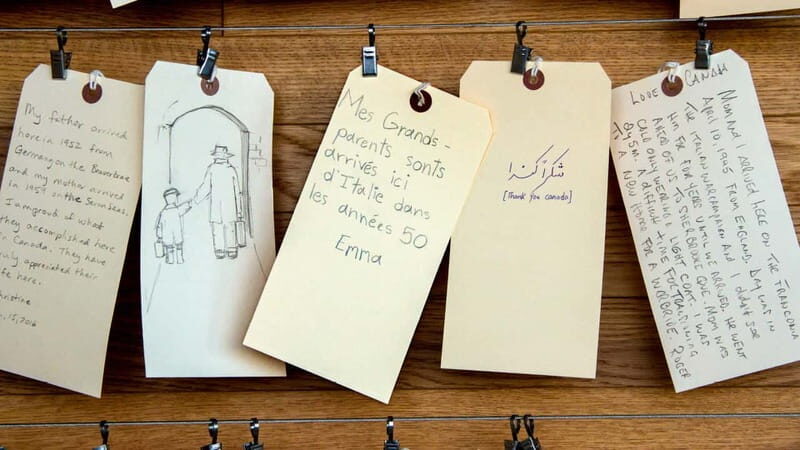 My father arrived
here in 1952 from
Germany on the Beaverbrae
and my mother arrived
in 1959 on the Seven Seas.
I am proud of what
they accomplished here
in Canada. They have
truly appreciated their
life here.
Christine
15, 2016
Mes Grands-
parents sonts
arrivés ici
d'Italie dans
les années 50
Emma
شكراً كندا
[Thank you Canada]
LOVE CANADA
MOM AND I ARRIVED HERE ON THE FRANCONIA
APRIL 10, 1945 FROM ENGLAND. DAD WAS IN
THE ITALIAN WAR CAMPAIGN AND I DIDN'T SEE
HIM FOR FOUR YEARS UNTIL WE ARRIVED. HE WENT
AHEAD OF US TO SHERBROOKE QUE. MOM WAS
COLD ONLY WEARING A LIGHT COAT. I WAS
2 1/2 yrs. A DIFFICULT TIME
TO A NEW HOME FOR A WAR BRIDE. ROGER